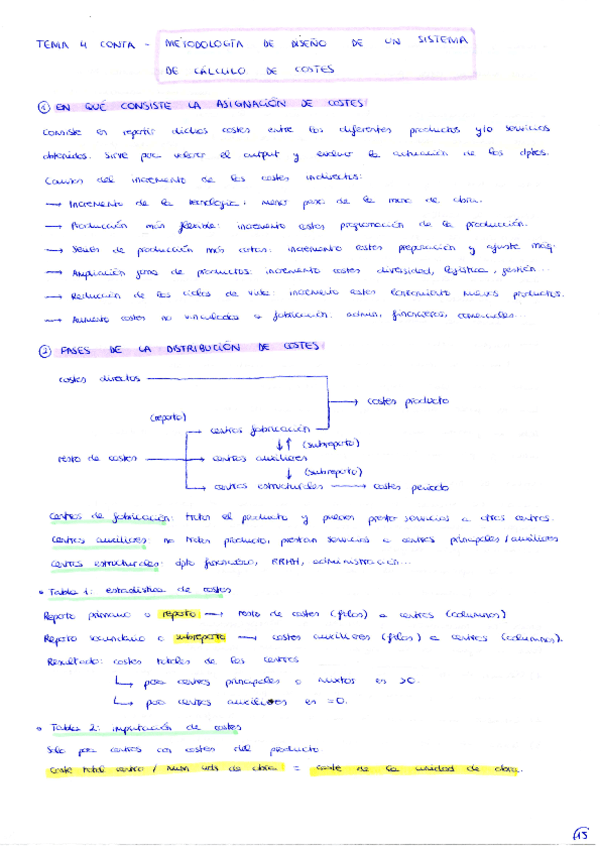 TEMA 4 CONTA - METODOLOGÍA DE DISEÑO DE UN SISTEMA
DE CÁLCULO DE COSTES
① EN QUÉ CONSISTE LA ASIGNACIÓN DE COSTES
Consiste en repartir dichos costes entre los diferentes productos y/o servicios
obtenidos. Sirve para valorar el output y evaluar la actuación de los dptos.
Causas del incremento de los costes indirectos:
→ Incremento de la tecnología: menor peso de la mano de obra.
→ Producción más flexible: incremento costes programación de la producción.
→ Series de producción más cortas: incremento costes preparación y ajuste máq.
→ Ampliación gama de productos: incremento costes diversidad, logística, gestión...
→ Reducción de los ciclos de vida: incremento costes lanzamiento nuevos productos.
→ Aumento costes no vinculados a fabricación: admin, financieros, comerciales...
② FASES DE LA DISTRIBUCIÓN DE COSTES
costes directos
→ costes producto
(reparto)
→ centros fabricación
↓↑ (subreparto)
resto de costes → centros auxiliares
↓ (subreparto)
→ centros estructurales → costes periodo
Centros de fabricación: tratan el producto y pueden prestar servicios a otros centros.
Centros auxiliares: no tratan producto, prestan servicios a centros principales/auxiliares
Centros estructurales: dpto financiero, RRHH, administración...
• Tabla 1: estadística de costes
Reparto primario o reparto → resto de costes (filas) a centros (columnas)
Reparto secundario o subreparto → costes auxiliares (filas) a centros (columnas).
Resultado: costes totales de los centros
↳ para centros principales o mixtos es >0.
↳ para centros auxiliares es =0.
• Tabla 2: imputación de costes
Solo para centros con costes del producto.
Coste total centro / num uds de obra = coste de la unidad de obra.
15